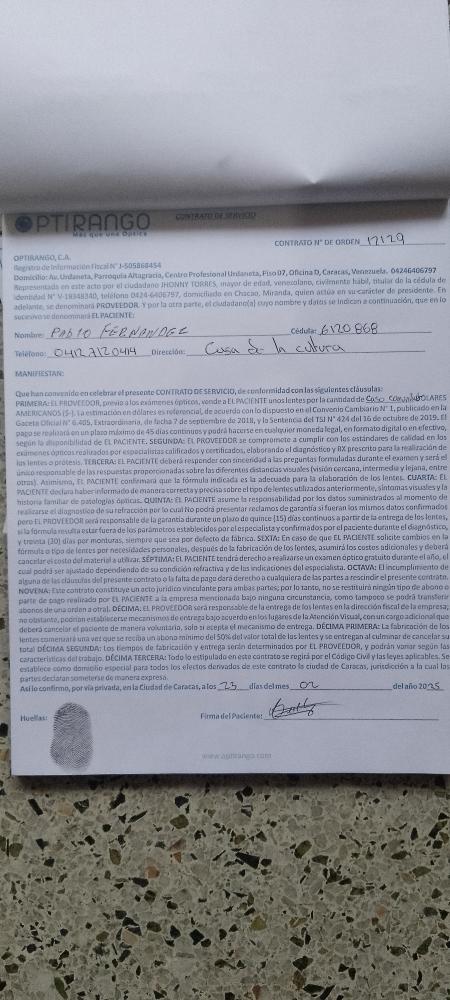 OPTIRANGO
Más que una Óptica
CONTRATO DE SERVICIO
CONTRATO N° DE ORDEN 17129
OPTIRANGO, C.A.
Registro de Información Fiscal N° J-505868454
Domicilio: Av. Urdaneta, Parroquia Altagracia, Centro Profesional Urdaneta, Piso 07, Oficina D, Caracas, Venezuela. 04246406797
Representada en este acto por el ciudadano JHONNY TORRES, mayor de edad, venezolano, civilmente hábil, titular de la cédula de
identidad N° V-18348340, teléfono 0424-6406797, domiciliado en Chacao, Miranda, quien actúa en su carácter de presidente. En
adelante, se denominará PROVEEDOR. Y por la otra parte, el ciudadano(a) cuyo nombre y datos se indican a continuación, que en lo
sucesivo se denominará EL PACIENTE:
Nombre: PABLO FERNANDEZ Cédula: 6120868
Teléfono: 04127120414 Dirección: Casa de la cultura
MANIFIESTAN:
Que han convenido en celebrar el presente CONTRATO DE SERVICIO, de conformidad con las siguientes cláusulas:
PRIMERA: EL PROVEEDOR, previo a los exámenes ópticos, vende a EL PACIENTE unos lentes por la cantidad de Caso DOLARES
AMERICANOS ($-). La estimación en dólares es referencial, de acuerdo con lo dispuesto en el Convenio Cambiario N° 1, publicado en la
Gaceta Oficial N° 6.405, Extraordinaria, de fecha 7 de septiembre de 2018, y la Sentencia del TSJ N° 424 del 16 de octubre de 2019. El
pago se realizará en un plazo máximo de 45 días continuos y podrá hacerse en cualquier moneda legal, en formato digital o en efectivo,
según la disponibilidad de EL PACIENTE. SEGUNDA: EL PROVEEDOR se compromete a cumplir con los estándares de calidad en los
exámenes ópticos realizados por especialistas calificados y certificados, elaborando el diagnóstico y RX prescrito para la realización de
los lentes o prótesis. TERCERA: EL PACIENTE deberá responder con sinceridad a las preguntas formuladas durante el examen y será el
único responsable de las respuestas proporcionadas sobre las diferentes distancias visuales (visión cercana, intermedia y lejana, entre
otras). Asimismo, EL PACIENTE confirmará que la fórmula indicada es adecuada para la elaboración de los lentes. CUARTA: EL
PACIENTE declara haber informado de manera correcta y precisa sobre el tipo de lentes utilizados anteriormente, síntomas visuales y la
historia familiar de patologías ópticas. QUINTA: EL PACIENTE asume la responsabilidad por los datos suministrados al momento de
realizarse el diagnostico de su refracción por lo cual No podrá presentar reclamos de garantía si fueran los mismos datos confirmados
pero EL PROVEEDOR será responsable de la garantía durante un plazo de quince (15) días continuos a partir de la entrega de los lentes,
si la fórmula resulta estar fuera de los parámetros establecidos por el especialista y confirmados por el paciente durante el diagnóstico,
y treinta (30) días por monturas, siempre que sea por defecto de fábrica. SEXTA: En caso de que EL PACIENTE solicite cambios en la
fórmula o tipo de lentes por necesidades personales, después de la fabricación de los lentes, asumirá los costos adicionales y deberá
cancelar el costo del material a utilizar. SÉPTIMA: EL PACIENTE tendrá derecho a realizarse un examen óptico gratuito durante el año, el
cual podrá ser ajustado dependiendo de su condición refractiva y de las indicaciones del especialista. OCTAVA: El incumplimiento de
alguna de las cláusulas del presente contrato o la falta de pago dará derecho a cualquiera de las partes a rescindir el presente contrato.
NOVENA: Este contrato constituye un acto jurídico vinculante para ambas partes; por lo tanto, no se restituirá ningún tipo de abono o
parte de pago realizado por EL PACIENTE a la empresa mencionada bajo ninguna circunstancia, como tampoco se podrá transferir
abonos de una orden a otra). DÉCIMA: EL PROVEEDOR será responsable de la entrega de los lentes en la dirección fiscal de la empresa;
no obstante, podrían establecerse mecanismos de entrega bajo acuerdo en los lugares de la Atención Visual, con un cargo adicional que
deberá cancelar el paciente de manera voluntaria, solo si acepta el mecanismo de entrega. DÉCIMA PRIMERA: La fabricación de los
lentes comenzará una vez que se reciba un abono mínimo del 50% del valor total de los lentes y se entregan al culminar de cancelar su
total DÉCIMA SEGUNDA: Los tiempos de fabricación y entrega serán determinados por EL PROVEEDOR, y podrán variar según las
características del trabajo. DÉCIMA TERCERA: Todo lo estipulado en este contrato se regirá por el Código Civil y las leyes aplicables. Se
establece como domicilio especial para todos los efectos derivados de este contrato la ciudad de Caracas, jurisdicción a la cual las
partes declaran someterse de manera expresa.
Así lo confirmo, por vía privada, en la Ciudad de Caracas, a los 25 días del mes 02 del año 2025
Huellas: Firma del Paciente:
www.optirango.com